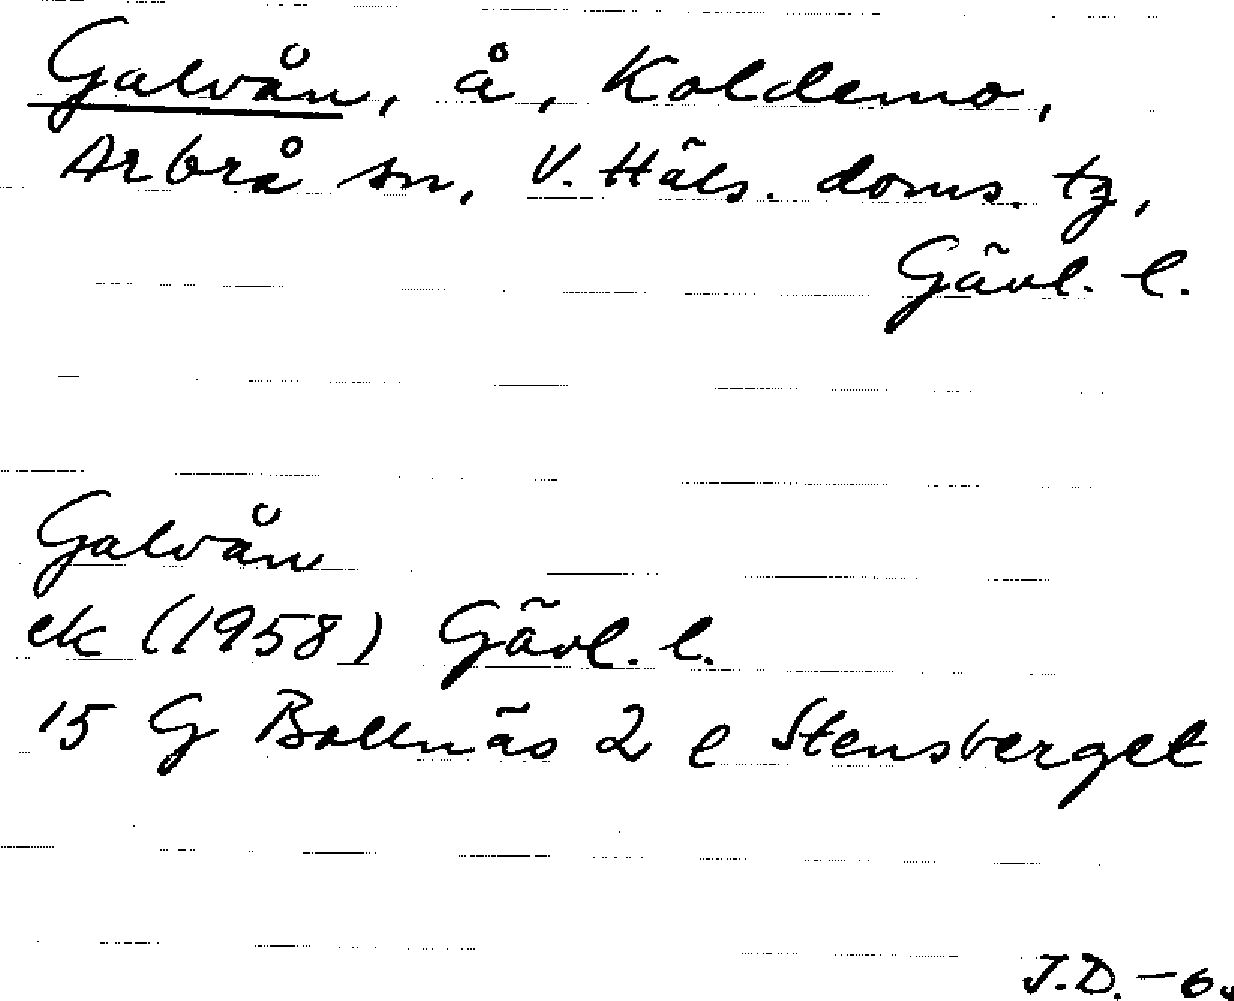 Galvån, å, Koldemo,
Arbrå sn, V. Häls. doms. tg,
Gävl. l.
Galvån
ek (1958) Gävl. l.
15 G Bollnäs 2 e Stensberget
J.D. -6